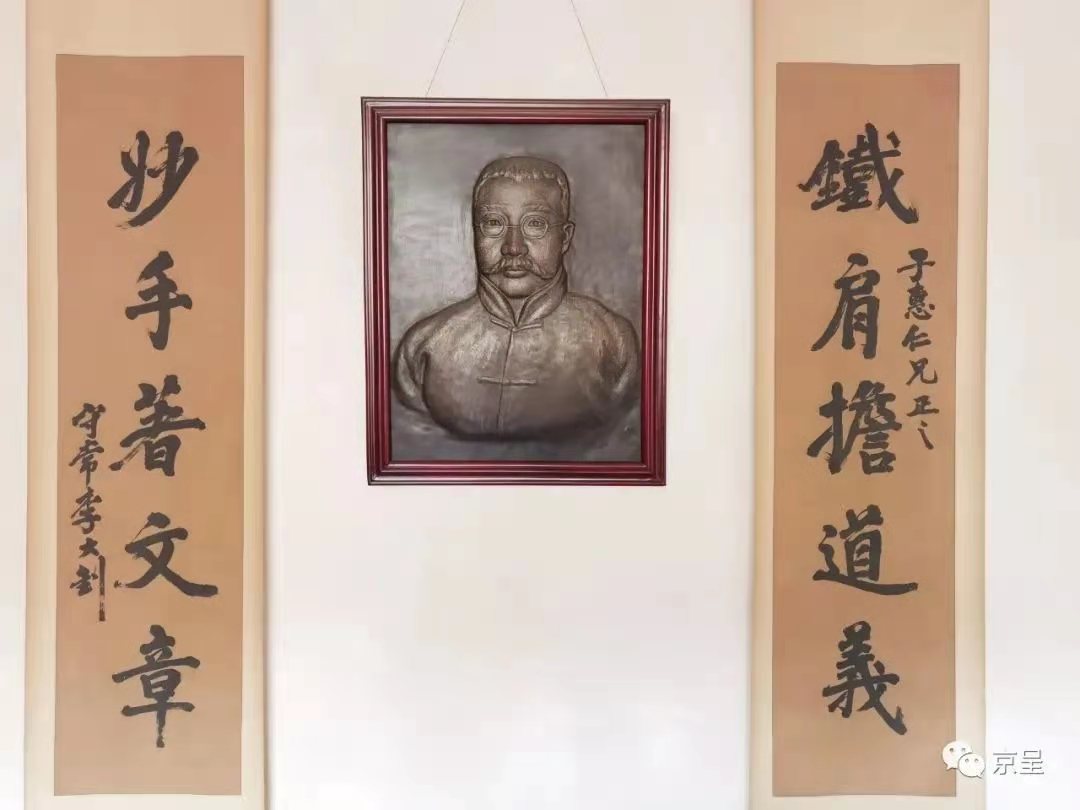 鐵肩擔道義
子惠仁兄正之
妙手著文章
守常李大釗
京呈